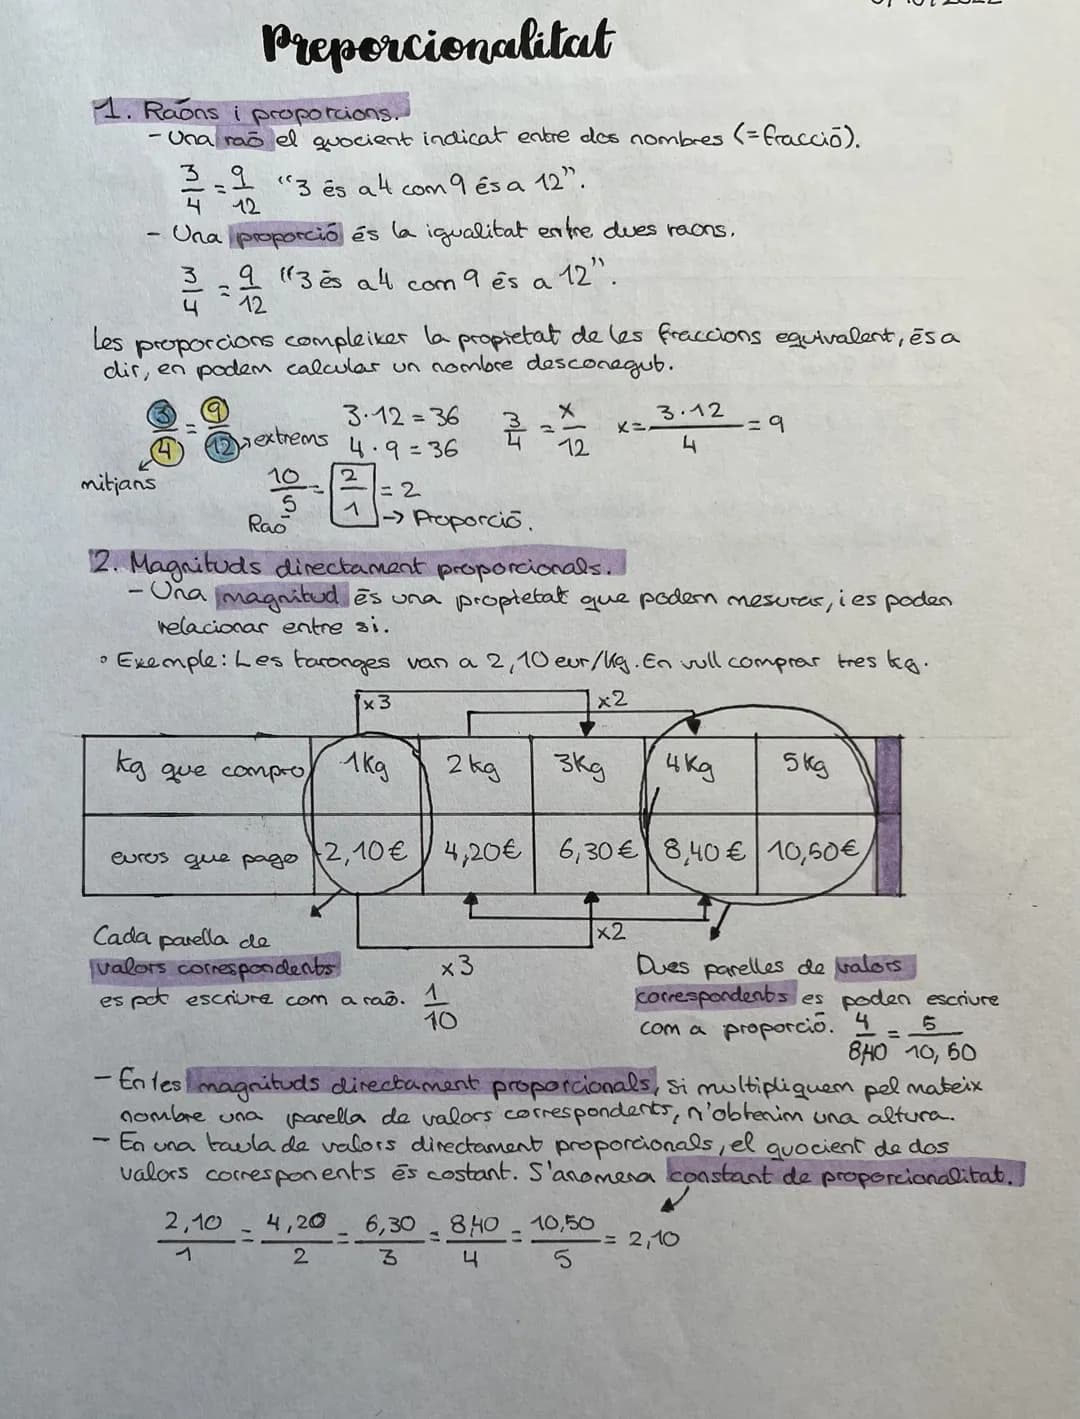 Preporcionalitat
1. Raons i proporcions.
- Una raó el quocient indicat entre dos nombres (=fracció).
3/4 = 9/12 “3 és a 4 com 9 és a 12”.
- Una proporció és la igualitat entre dues raons.
3/4 = 9/12 “3 és a 4 com 9 és a 12”.
Les proporcions compleixer la propietat de les fraccions equivalent, és a
dir, en podem calcular un nombre desconegut.
3/4 = 9/12 → extrems
mitjans
3·12 = 36
4·9 = 36
3/4 = x/12 x = 3·12/4 = 9
10/5 = 2/1 = 2
Raó → Proporció.
2. Magnituds directament proporcionals.
- Una magnitud és una propietat que podem mesurar, i es poden
relacionar entre si.
• Exemple: Les taronges van a 2,10 eur/kg. En vull comprar tres kg.
x3 x2
kg que compro 1Kg 2 kg 3Kg 4Kg 5kg
euros que pago 2,10€ 4,20€ 6,30€ 8,40€ 10,50€
x2
x3
Cada parella de
valors correspondents
es pot escriure com a raó. 1/10
Dues parelles de valors
correspondents es poden escriure
com a proporció. 4/8,40 = 5/10,50
- En les magnituds directament proporcionals, si multipliquem pel mateix
nombre una parella de valors correspondents, n'obtenim una altura.
- En una taula de valors directament proporcionals, el quocient de dos
valors corresponents és costant. S'anomena constant de proporcionalitat.
2,10/1 = 4,20/2 = 6,30/3 = 8,40/4 = 10,50/5 = 2,10